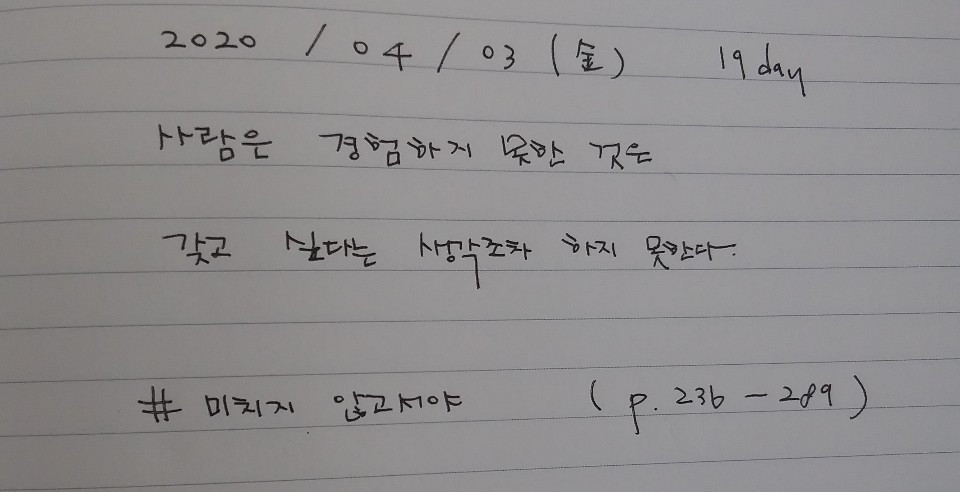 2020 / 04 / 03 (金) 19 day
사람은 경험하지 못한 것은
갖고 싶다는 생각조차 하지 못한다.
# 미치지 않고서야 (p. 236 - 289)